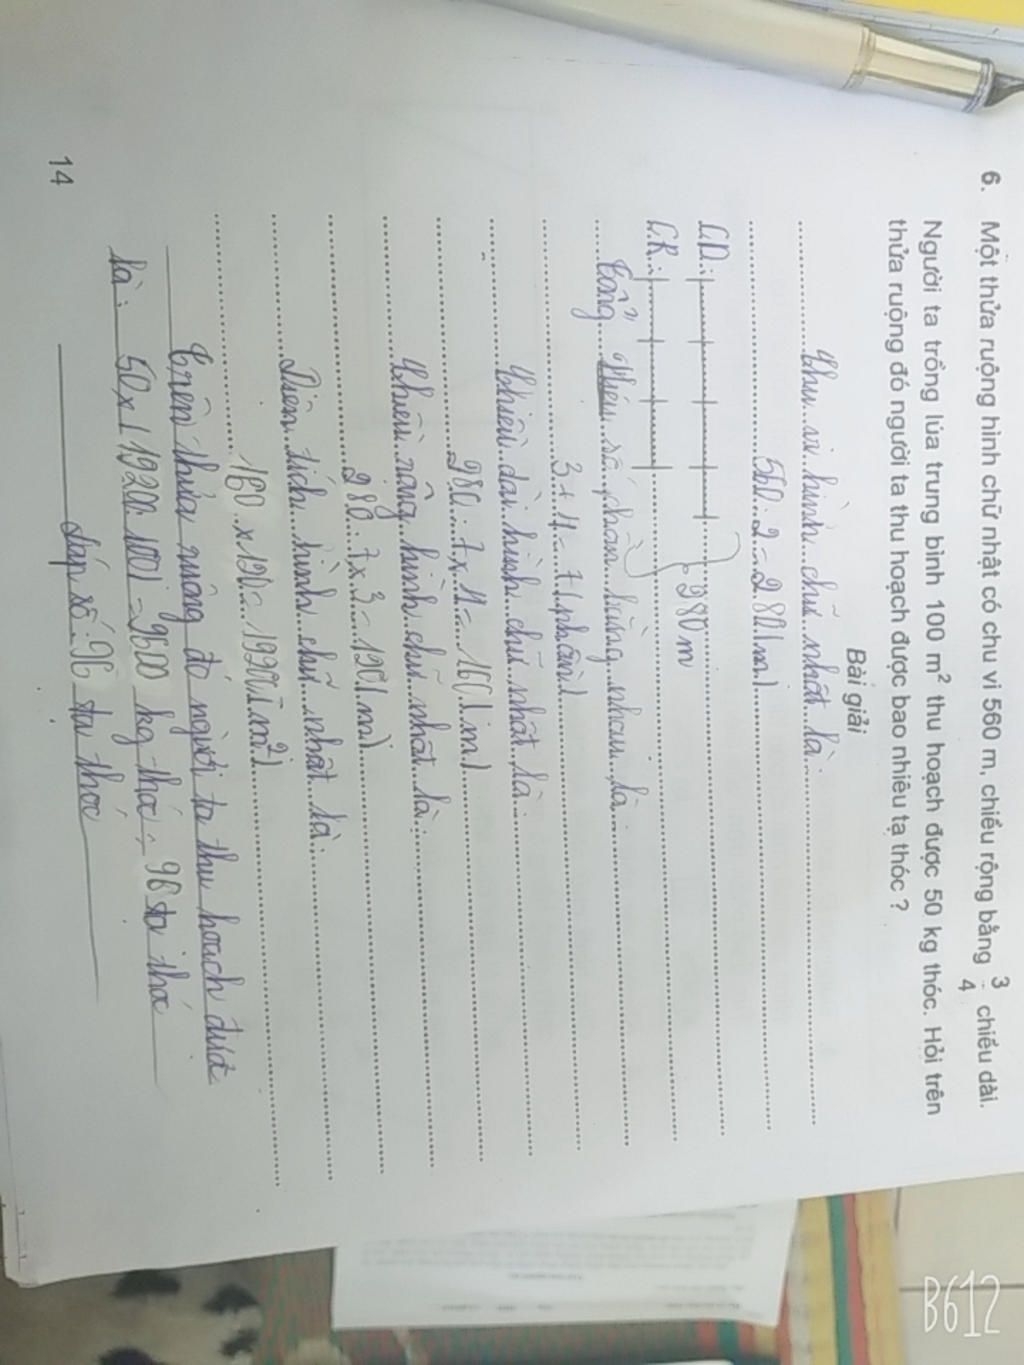 6. Một thửa ruộng hình chữ nhật có chu vi 560 m, chiều rộng bằng 3/4 chiều dài.
Người ta trồng lúa trung bình 100 m² thu hoạch được 50 kg thóc. Hỏi trên
thửa ruộng đó người ta thu hoạch được bao nhiêu tạ thóc ?
Bài giải
Chu vi hình chữ nhật là:
560 : 2 = 280 (m)
C.D:
280 m
C.R:
Tổng số phần bằng nhau là:
3 + 4 = 7 (phần)
Chiều dài hình chữ nhật là:
280 : 7 x 4 = 160 (m)
Chiều rộng hình chữ nhật là:
280 : 7 x 3 = 120 (m)
Diện tích hình chữ nhật là:
160 x 120 = 19200 (m²)
Trên thửa ruộng đó người ta thu hoạch được
là: 50 x (19200 : 100) = 9600 kg thóc = 96 tạ thóc
Đáp số: 96 tạ thóc
14
B612